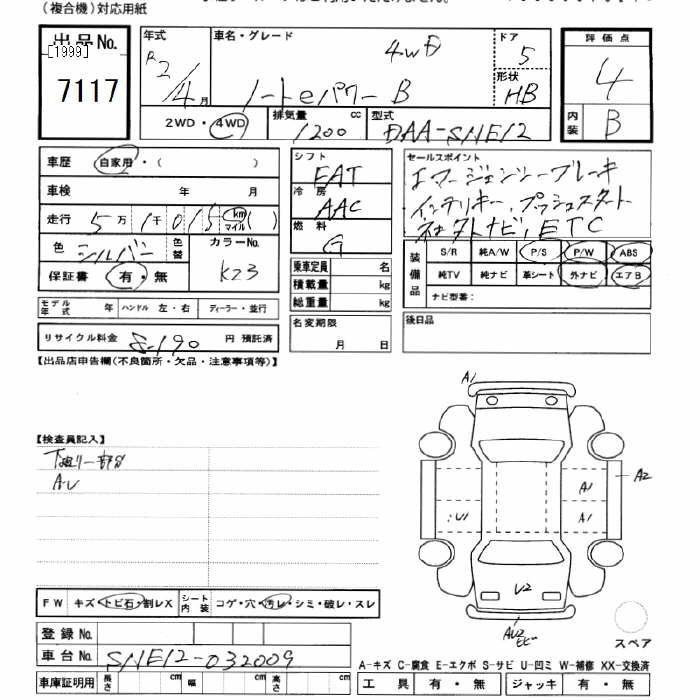 (複合機)対応用紙
出品No.
[1999]
7117
年式
R2/4月
車名・グレード
4WD
ノートeパワー B
ドア
5
形状
HB
2WD・4WD
排気量 cc
1200
型式
DAA-SNE12
評価点
4
内装
B
車歴 自家用・( )
車検 年 月
走行 5万1千015 km マイル ( )
色 シルバー
色替
カラーNo.
K23
保証書 有・無
モデル年式 年 ハンドル 左・右 ディーラー・並行
リサイクル料金 8-190 円 預託済
シフト
FAT
冷房
AAC
燃料
G
乗車定員 名
積載量 kg
総重量 kg
名変期限
月 日
セールスポイント
エマージェンシーブレーキ
インテリキー、プッシュスタート
ナビ、ETC
装備品
S/R 純A/W P/S P/W ABS
純TV 純ナビ 革シート 外ナビ エアB
ナビ型番:
後日品
【出品店申告欄(不良箇所・欠品・注意事項等)】
【検査員記入】
下廻り一部サ
AU
A1
A2
A1
A1
U1
U2
AU2
スペア
FW キズ・トビ石・割レX
シート内装 コゲ・穴・汚レ・シミ・破レ・スレ
登録No.
車台No. SNE12-032009
車庫証明用 長さ cm 幅 cm 高さ cm
A-キズ C-腐食 E-エクボ S-サビ U-凹ミ W-補修 XX-交換済
工具 有・無 ジャッキ 有・無